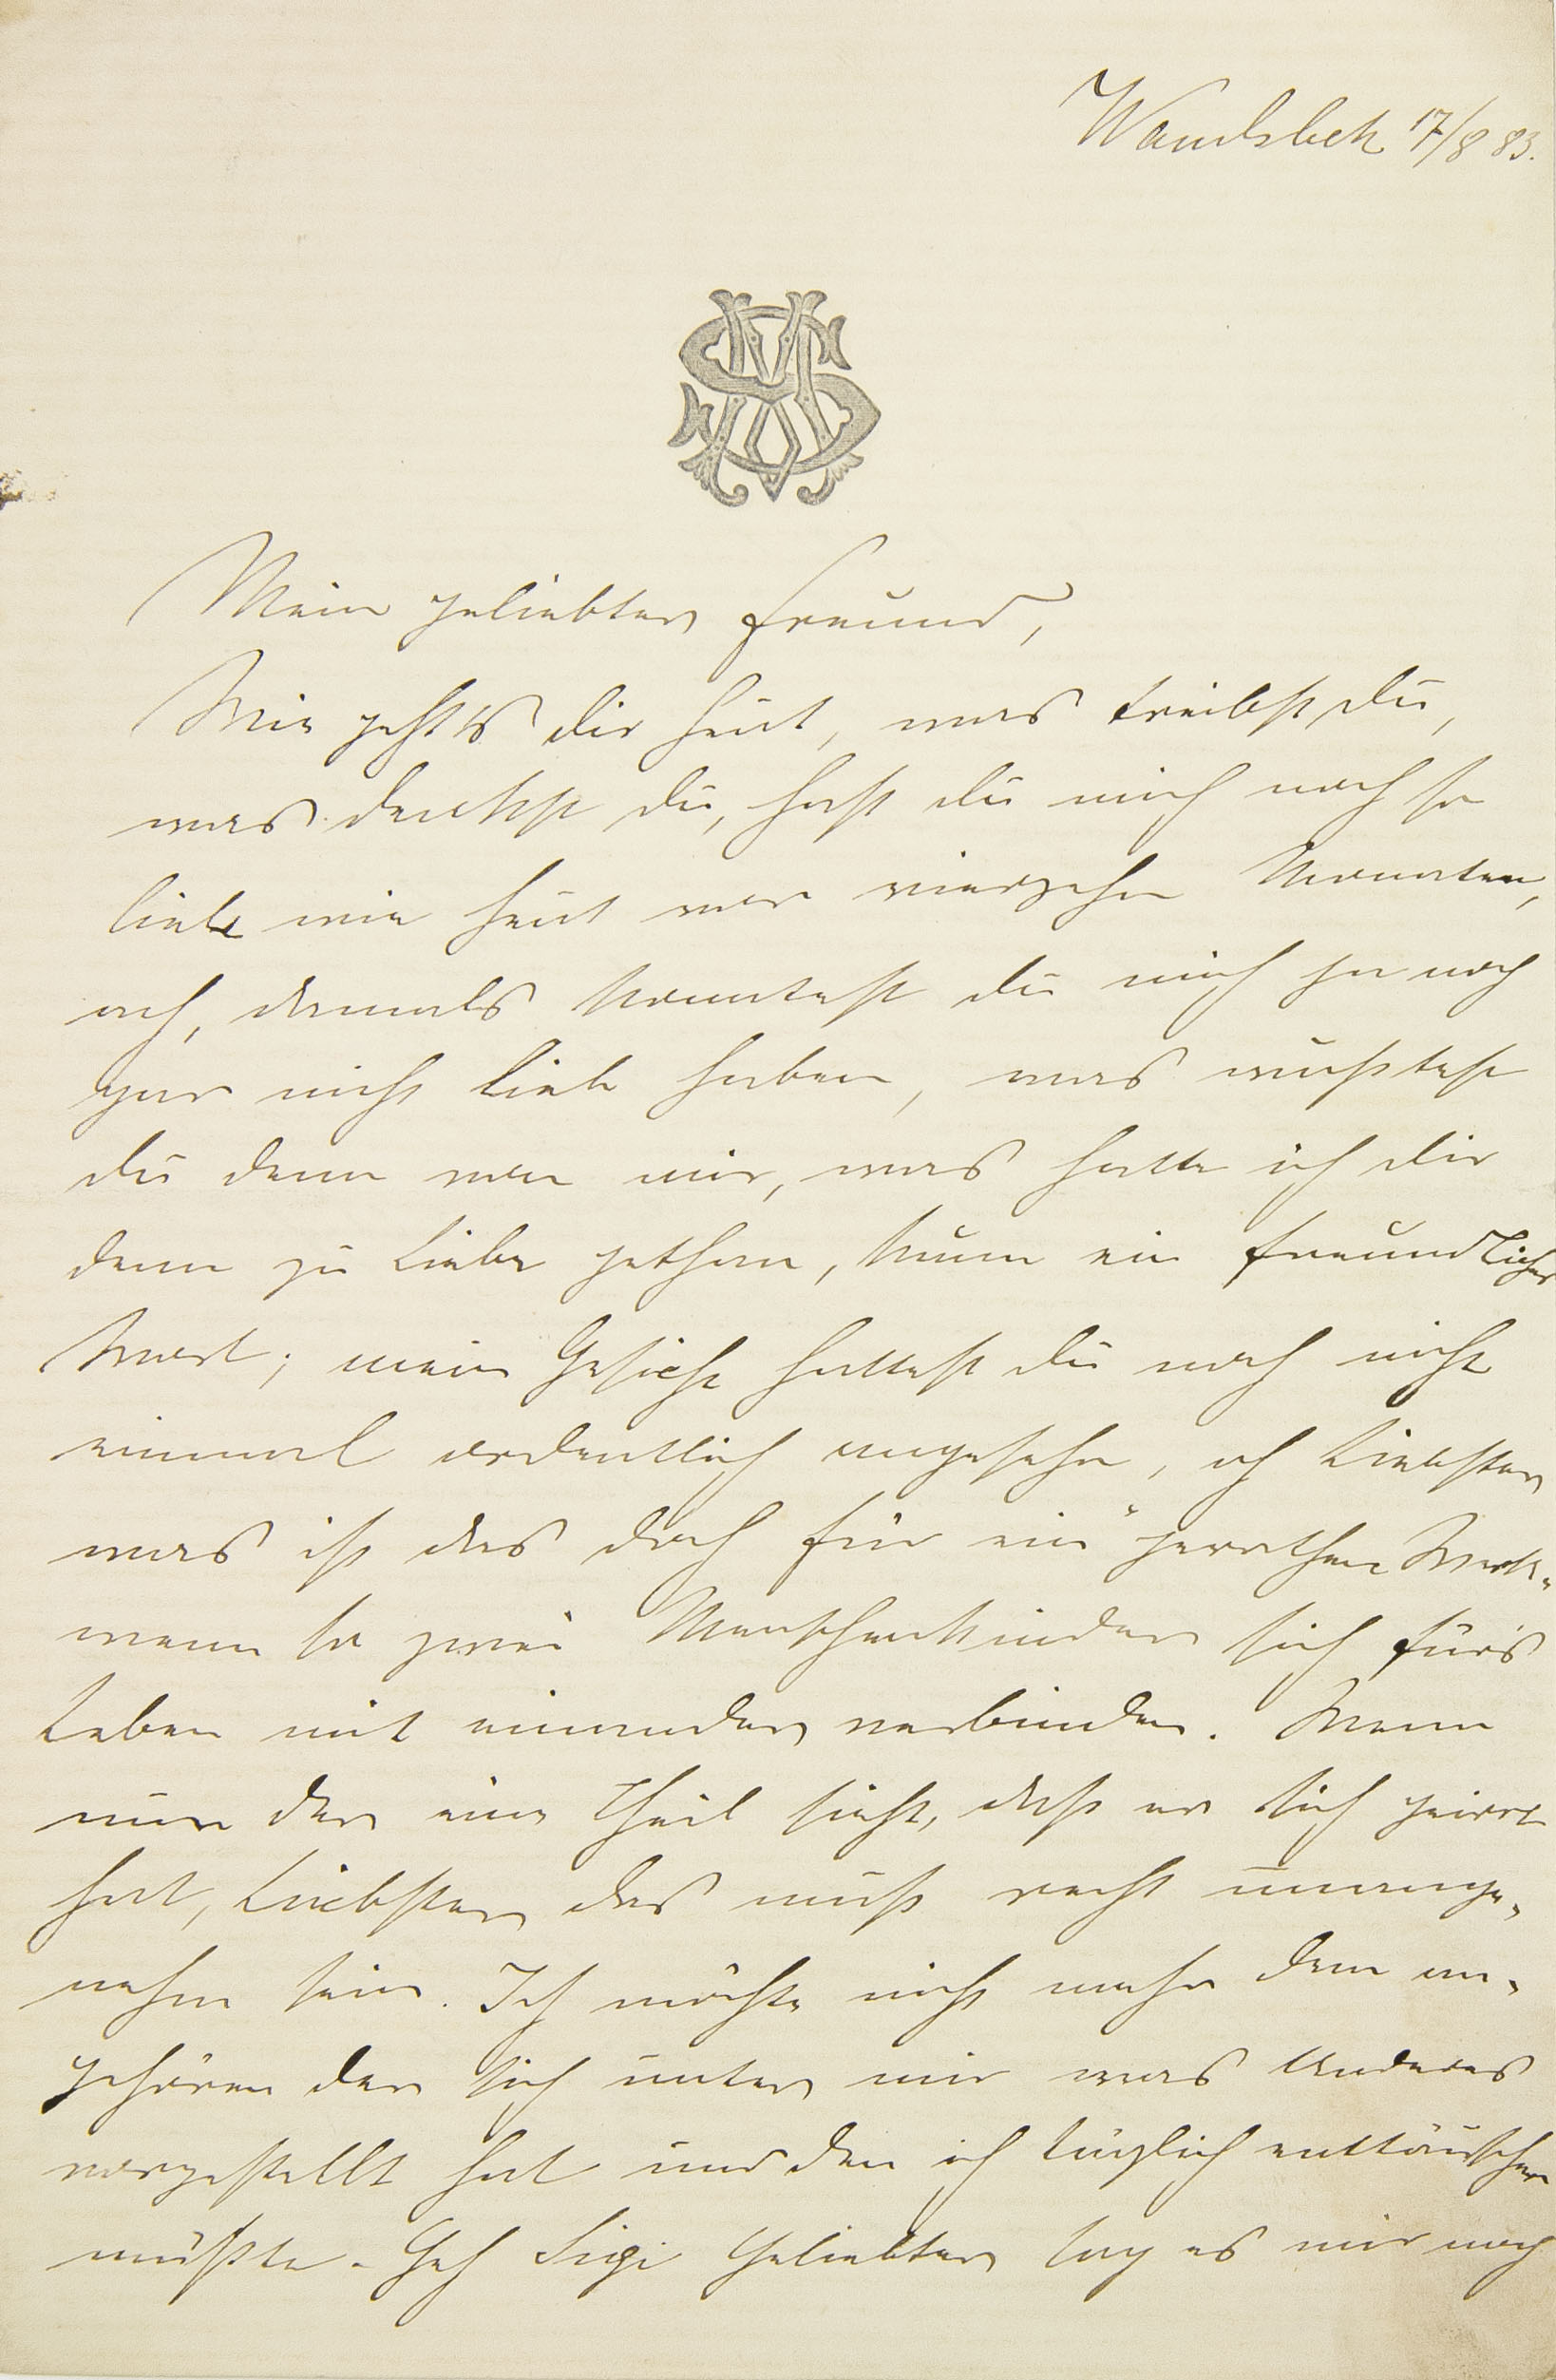 Wandsbek 17/8 83.
MS
Mein geliebter Freund,
Wie geht's dir heut, was treibst du,
was denkst du, hast du mich noch so
lieb wie heut vor vierzehn Monaten,
ach, damals konntest du mich ja noch
gar nicht lieb haben, was wußtest
du denn von mir, was hatte ich dir
denn zu Liebe gethan, kaum ein freundliches
Wort; mein Gesicht hattest du noch nicht
einmal ordentlich angesehn, ach Liebster
was ist das doch für ein
wenn so zwei Menschenkinder sich für's
Leben mit einander verbinden. Wenn
nun der eine Theil sieht, daß er sich geirrt
hat, Liebster das muß recht unange-
nehm sein. Ich möchte nicht mehr dem an-
gehören der sich unter mir was Anderes
vorgestellt hat und den ich täglich enttäuschen
müßte. Geh Sigi Geliebter sag es mir noch